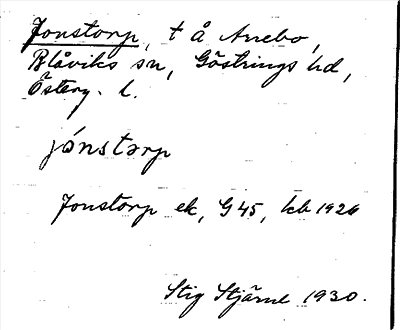 Jonstorp, t å Arrebo,
Blåviks sn, Göstrings hd,
Österg. l.
jónstorp
Jonstorp ek, G 45, kb 1926
Stig Stjärne 1930.